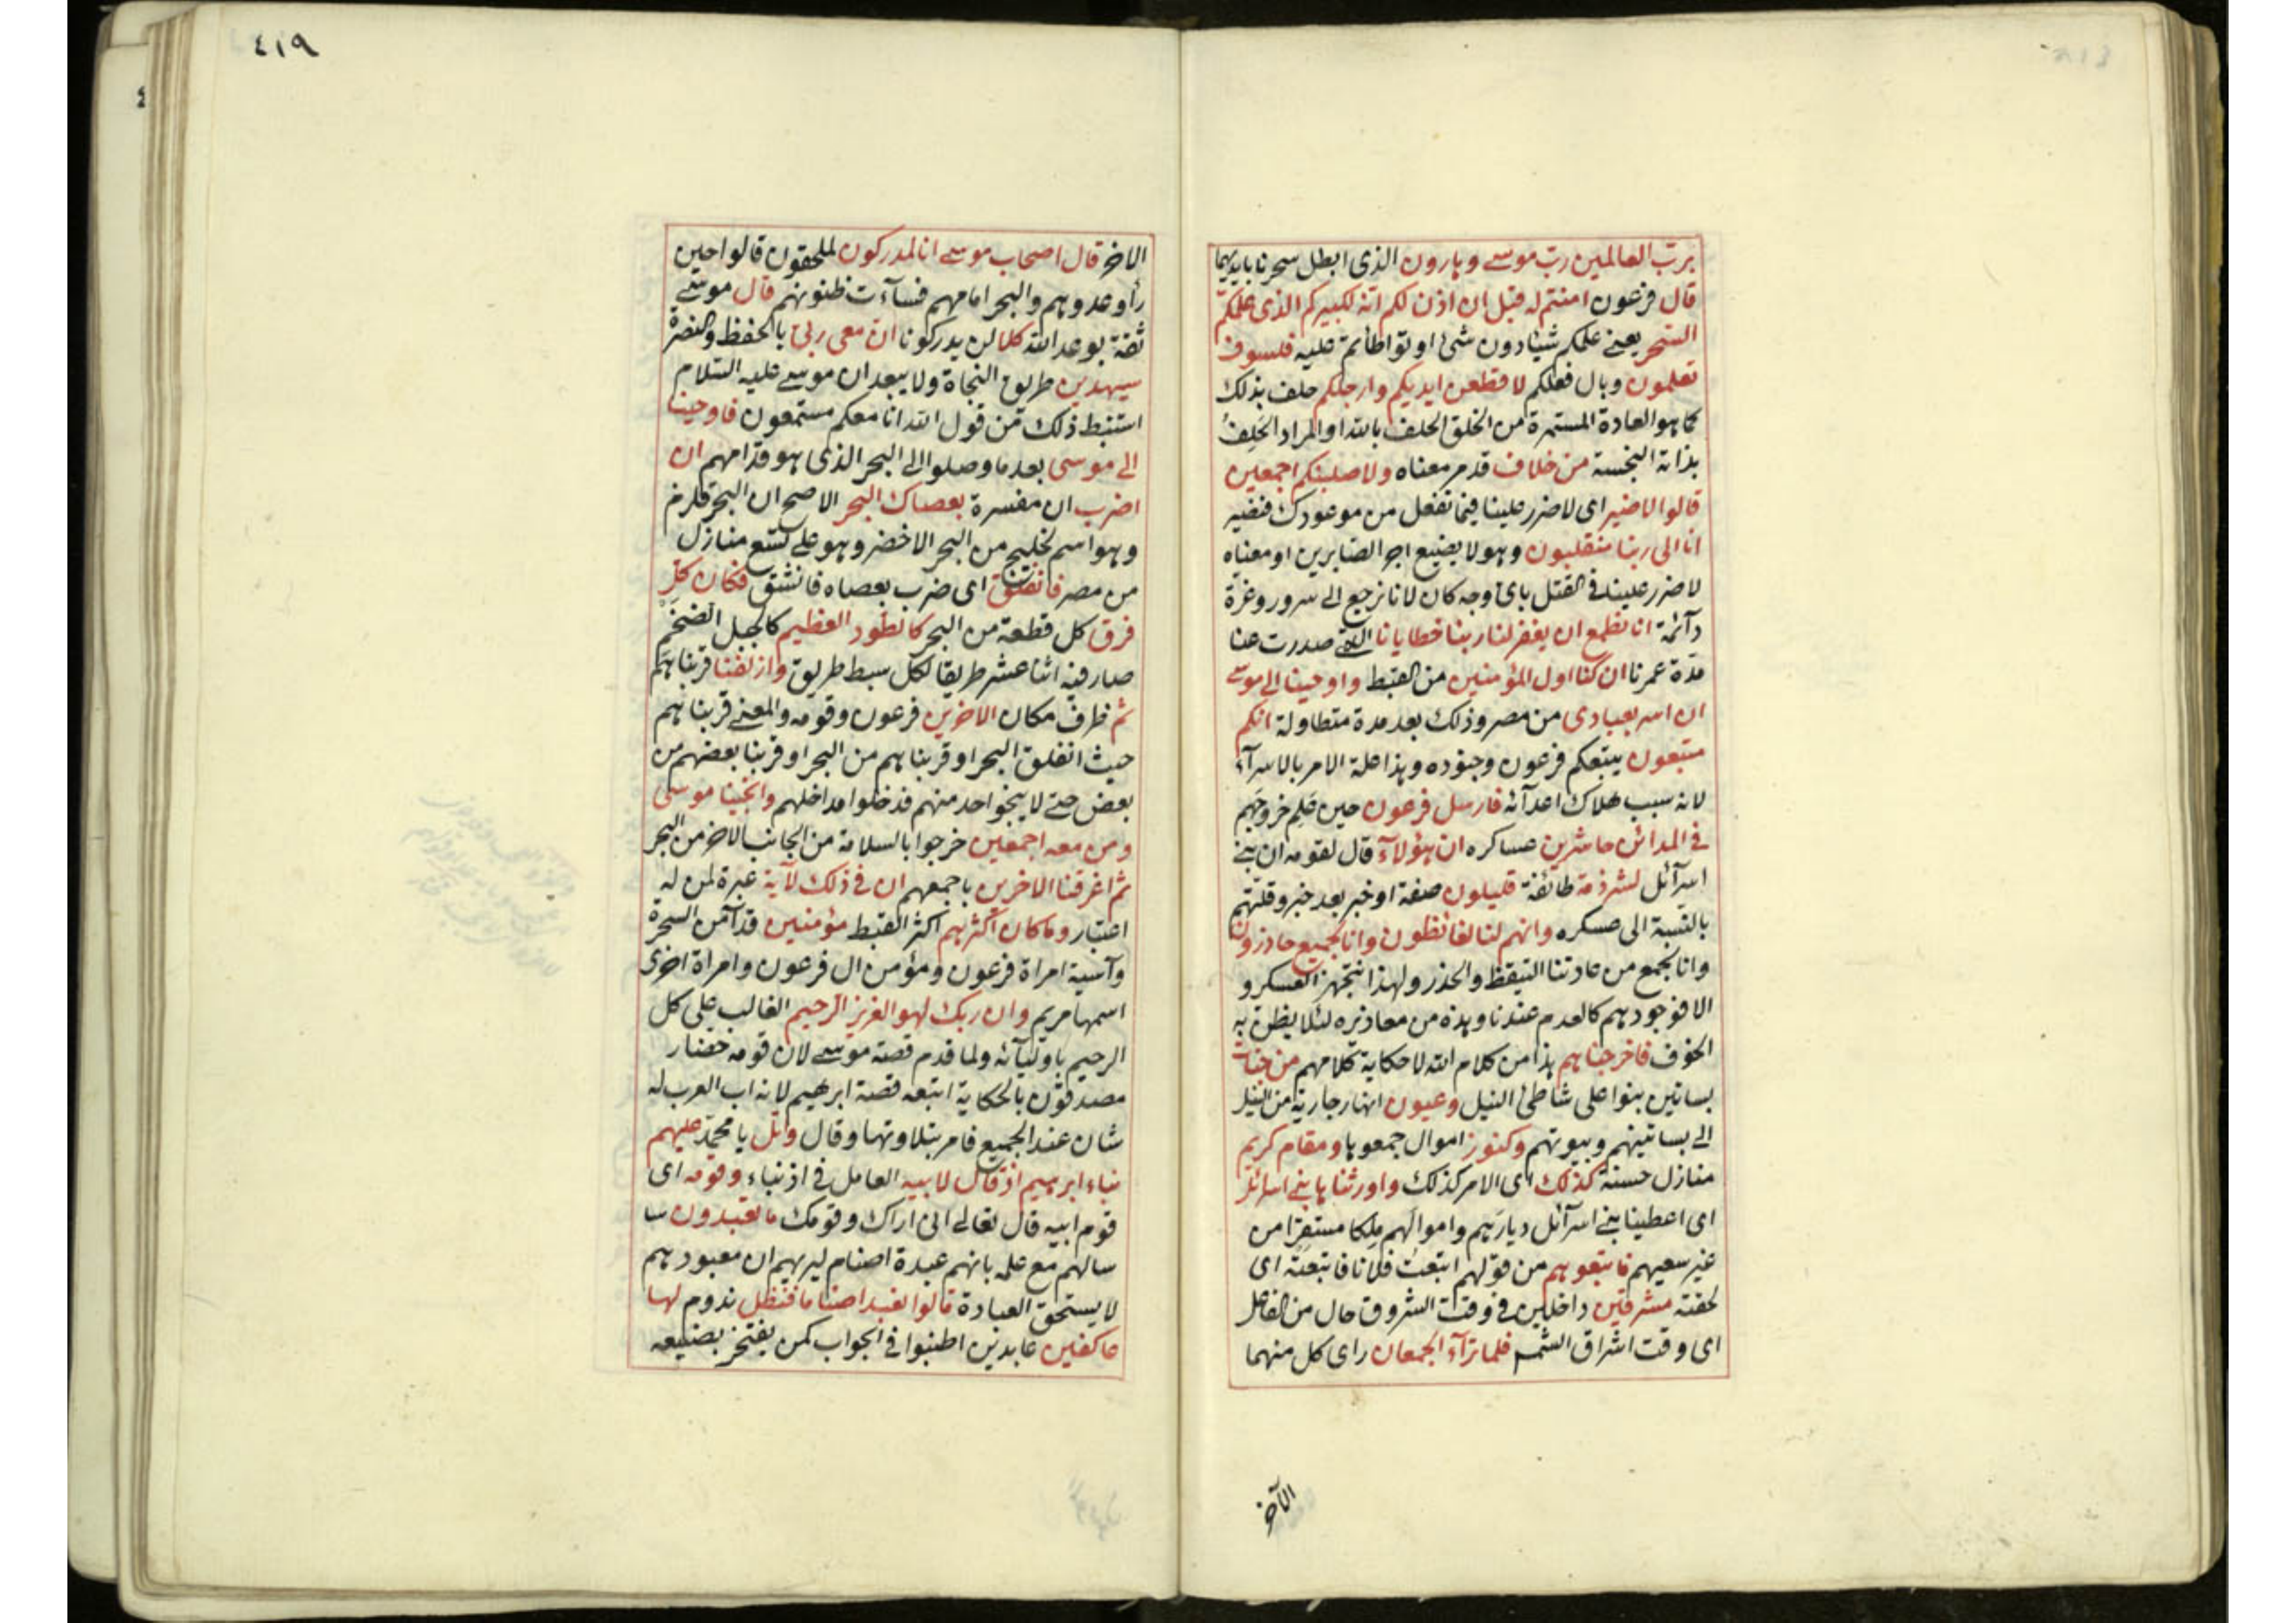 برب العالمين رب موسى وهارون الذى ابطل سحرنا بايديهما
قال فرعون امنتم له قبل ان اذن لكم انه لكبيركم الذى علمكم
السحر يعنى علمكم شيئا دون شئ او تواطأتم عليه فلسوف
تعلمون وبال فعلكم لاقطعن ايديكم وارجلكم حلف بذلك
كما هو العادة المستمرة من الخلق الحلف بالله او المراد الحلف
بذاته النجسة من خلاف قد مر معناه ولاصلبنكم اجمعين
قالوا لا ضير اى لا ضرر علينا فيما تفعل من موعودك فنصير
انا الى ربنا منقلبون وهو لا يضيع اجر الصابرين او معناه
لا ضرر علينا فى القتل باى وجه كان لانا نرجع الى سرور وعزة
دآئمة انا نطمع ان يغفر لنا ربنا خطايانا التى صدرت عنا
مدة عمرنا ان كنا اول المؤمنين من القبط واوحينا الى موسى
ان اسر بعبادى من مصر وذلك بعد مدة متطاولة انكم
متبعون يتبعكم فرعون وجنوده وهذا علة الامر بالاسرآء
لانه سبب هلاك اعدآئه فارسل فرعون حين علم خروجهم
فى المدائن حاشرين عساكره ان هؤلآء قال لقومه ان بنى
اسرآئل لشرذمة طائفة قليلون صفة او خبر بعد خبر وقلتهم
بالنسبة الى عسكره وانهم لنا لغائظون وانا لجميع حاذرون
وانا لجمع من عادتنا التيقظ والحذر ولهذا نتجهز العسكر و
الا فوجودهم كالعدم عندنا وهذه من معاذيره لئلا يظن به
الخوف فاخرجناهم هذا من كلام الله لا حكاية كلامهم من جنات
بساتين بنوا على شاطئ النيل وعيون انهار جارية من النيل
الى بساتينهم وبيوتهم وكنوز اموال جمعوها ومقام كريم
منازل حسنة كذلك اى الامر كذلك واورثناها بنى اسرائل
اى اعطينا بنى اسرآئل ديارهم واموالهم ملكا مستقرا من
غير سعيهم فاتبعوهم من قولهم اتبعت فلانا فاتبعته اى
لحقته مشرقين داخلين فى وقت الشروق حال من الفاعل
اى وقت اشراق الشمس فلما ترآء الجمعان راى كل منهما
الآخر
٤١٩
الاخر قال اصحاب موسى انا لمدركون لملحقون قالوا حين
رأوا عدوهم والبحر امامهم فسآءت ظنونهم قال موسى
ثقة بوعد الله كلا لن يدركونا ان معى ربى بالحفظ والنصرة
سيهدين طريق النجاة ولا يبعد ان موسى عليه السلام
استنبط ذلك من قول الله انا معكم مستمعون فاوحينا
الى موسى بعد ما وصلوا الى البحر الذى هو قدامهم ان
اضرب ان مفسرة بعصاك البحر الاصح ان البحر قلزم
وهو اسم لخليج من البحر الاخضر وهو على تسع منازل
من مصر فانفلق اى ضرب بعصاه فانشق فكان كل
فرق كل قطعة من البحر كالطود العظيم كالجبل الضخم
صار فيه اثنا عشر طريقا لكل سبط طريق وازلفنا قربناهم
ثم ظرف مكان الاخرين فرعون وقومه والمعنى قربناهم
حيث انفلق البحر او قربناهم من البحر او قربنا بعضهم من
بعض حتى لا ينجوا احد منهم فدخلوا مداخلهم وانجينا موسى
ومن معه اجمعين خرجوا بالسلامة من الجانب الاخر من البحر
ثم اغرقنا الاخرين باجمعهم ان فى ذلك لآية عبرة لمن له
اعتبار وما كان اكثرهم اكثر القبط مؤمنين قد آمن السحرة
وآسية امراة فرعون ومؤمن ال فرعون وامراة اخرى
اسمها مريم وان ربك لهو العزيز الرحيم الغالب على كل
الرحيم باوليآئه ولما قدم قصة موسى لان قومه حضار
مصدقون بالحكاية اتبعه قصة ابرهيم لانه اب العرب له
شان عند الجميع فامر بتلاوتها وقال واتل يا محمد عليهم
نباء ابرهيم اذ قال لابيه العامل فى اذ نباء وقومه اى
قوم ابيه قال تعالى انى اراك وقومك ما تعبدون سا
سالهم مع علمه بانهم عبدة اصنام ليريهم ان معبودهم
لا يستحق العبادة قالوا نعبد اصناما فنظل ندوم لها
عاكفين عابدين اطنبوا فى الجواب كمن يفتخر بصنيعه